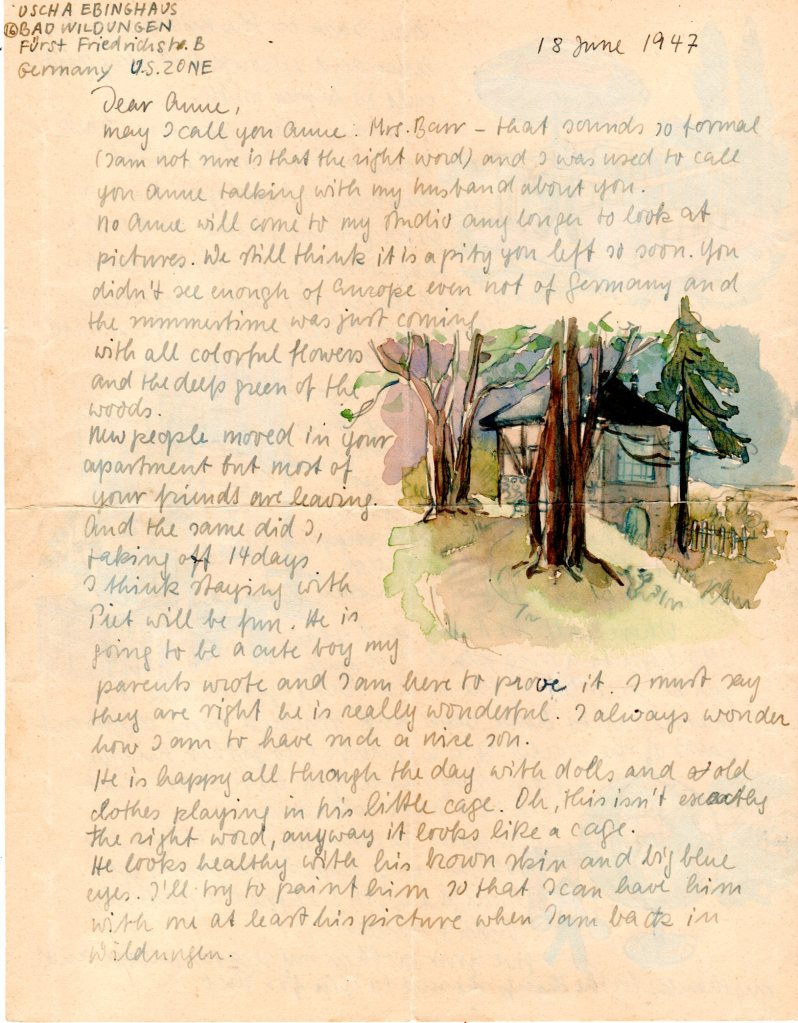 USCHA EBINGHAUS
(16) BAD WILDUNGEN
Fürst Friedrichstr. B
Germany U.S. ZONE
18 June 1947
Dear Anne,
may I call you Anne. Mrs. Barr – that sounds so formal
(I am not sure is that the right word) and I was used to call
you Anne talking with my husband about you.
No Anne will come to my studio any longer to look at
pictures. We still think it is a pity you left so soon. You
didn't see enough of Europe even not of Germany and
the summertime was just coming
with all colorful flowers
and the deep green of the
woods.
New people moved in your
apartment but most of
your friends are leaving.
And the same did I,
taking off 14 days
I think staying with
Piet will be fun. He is
going to be a cute boy my
parents wrote and I am here to prove it. I must say
they are right he is really wonderful. I always wonder
how I am to have such a nice son.
He is happy all through the day with dolls and old
clothes playing in his little cage. Oh, this isn't exactly
the right word, anyway it looks like a cage.
He looks healthy with his brown skin and big blue
eyes. I'll try to paint him so that I can have him
with me at least his picture when I am back in
Wildungen.